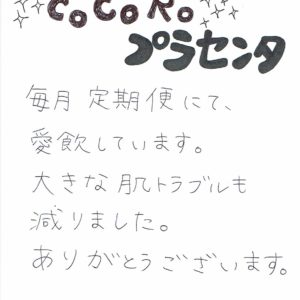 CoCoRo
プラセンタ
毎月 定期便にて、
愛飲しています。
大きな肌トラブルも
減りました。
ありがとうございます。